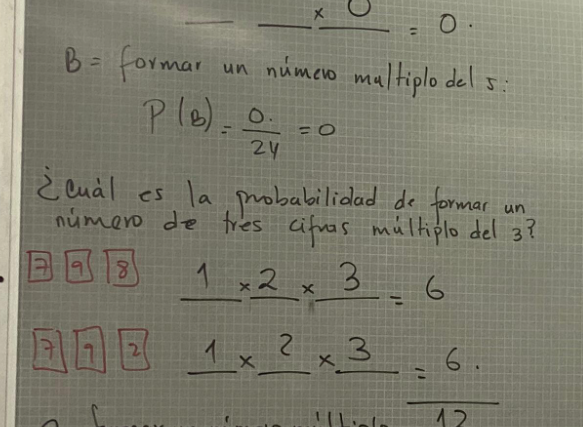 __ __ x 0 = 0.
B = formar un número multiplo del 5:
P(B) = 0. / 24 = 0
¿Cuál es la probabilidad de formar un
número de tres cifras múltiplo del 3?
7 9 8 1 x 2 x 3 = 6
7 9 2 1 x 2 x 3 = 6.
12